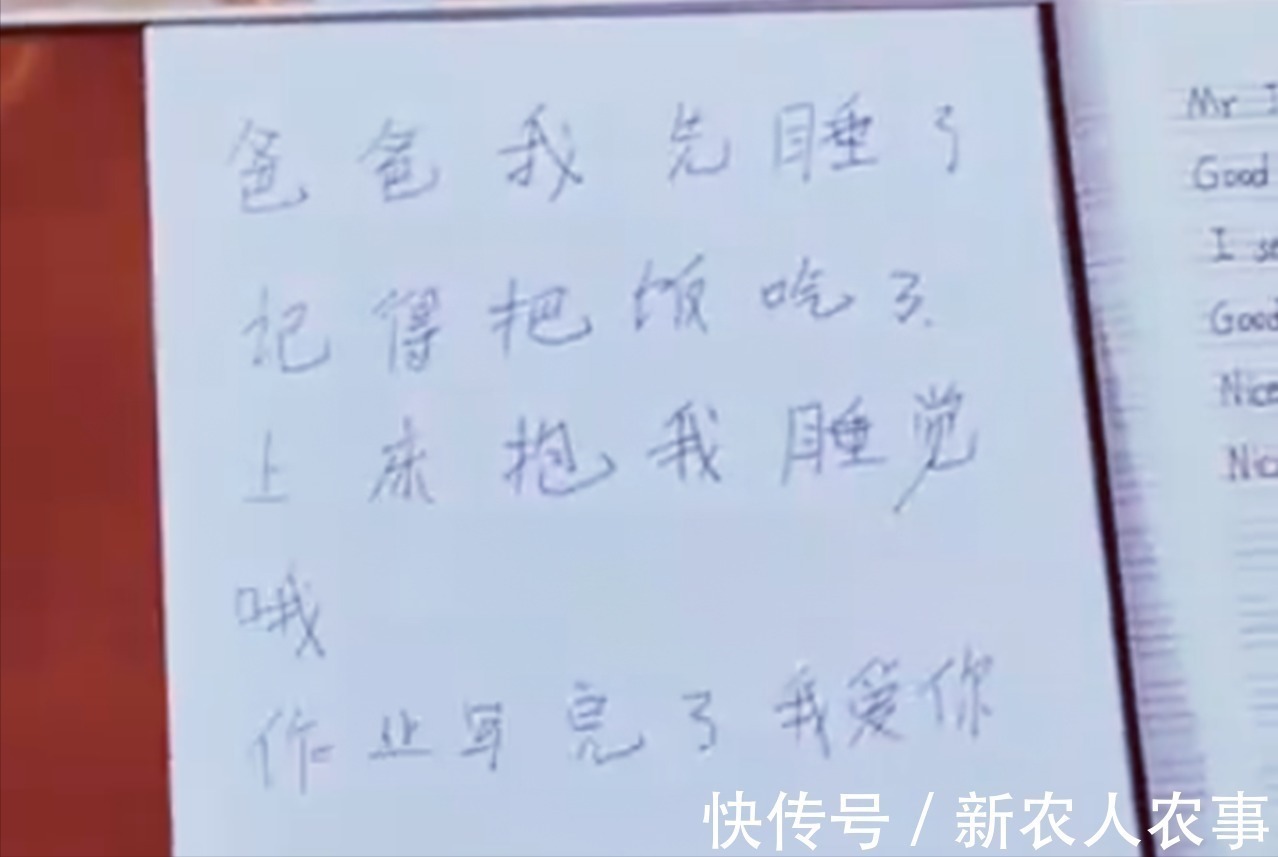 爸爸我先睡了
记得把饭吃了.
上床抱我睡觉
哦
作业写完了我爱你
Mr
Good
I
Good
Nice
Nic
快传号/新农人农事